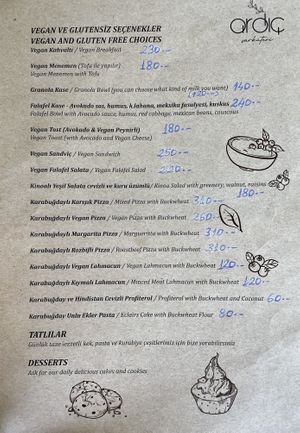 ardıç
VEGAN VE GLUTENSİZ SEÇENEKLER
VEGAN AND GLUTEN FREE CHOICES
Vegan Kahvaltı / Vegan Breakfast 230.--
Vegan Menemen (Tofu ile yapılır) 180.--
Vegan Menemen with Tofu
Granola Kase / Granola Bowl (you can choose what kind of milk you want) 140.--
Falafel Kase - Avokado sos, humus, k.lahana, meksika fasulyesi, kuskus 240.--
Falafel Bowl with Avocado sauce, humus, red cabbage, mexican beans, couscous
Vegan Tost (Avokado & Vegan Peynirli) 180.--
Vegan Toast (with Avocado and Vegan Cheese)
Vegan Sandviç / Vegan Sandwich 250.--
Vegan Falafel Salata / Vegan Falafel Salad 230.--
Kinoalı Yeşil Salata cevizli ve kuru üzümlü / Kinoa Salad with greenery, walnut, raisins 180.--
Karabuğdaylı Karışık Pizza / Mixed Pizza with Buckwheat 310.--
Karabuğdaylı Vegan Pizza / Vegan Pizza with Buckwheat 260.--
Karabuğdaylı Margarita Pizza / Margherita with Buckwheat 310.--
Karabuğdaylı Rozbifli Pizza / Roastbeef Pizza with Buckwheat 310.--
Karabuğdaylı Vegan Lahmacun / Vegan Lahmacun with Buckwheat 120.--
Karabuğdaylı Kıymalı Lahmacun / Minced Meat Lahmacun with Buckwheat 120.--
Karabuğday ve Hindistan Cevizli Profiterol / Profiterol with Buckwheat and Coconut 60.--
Karabuğday Unlu Ekler Pasta / Eclairs Cake with Buckwheat Flour 80.--
TATLILAR
Günlük taze lezzetli kek, pasta ve kurabiye çeşitlerimiz için bize sorabilirsiniz
DESSERTS
Ask for our daily delicious cakes and cookies